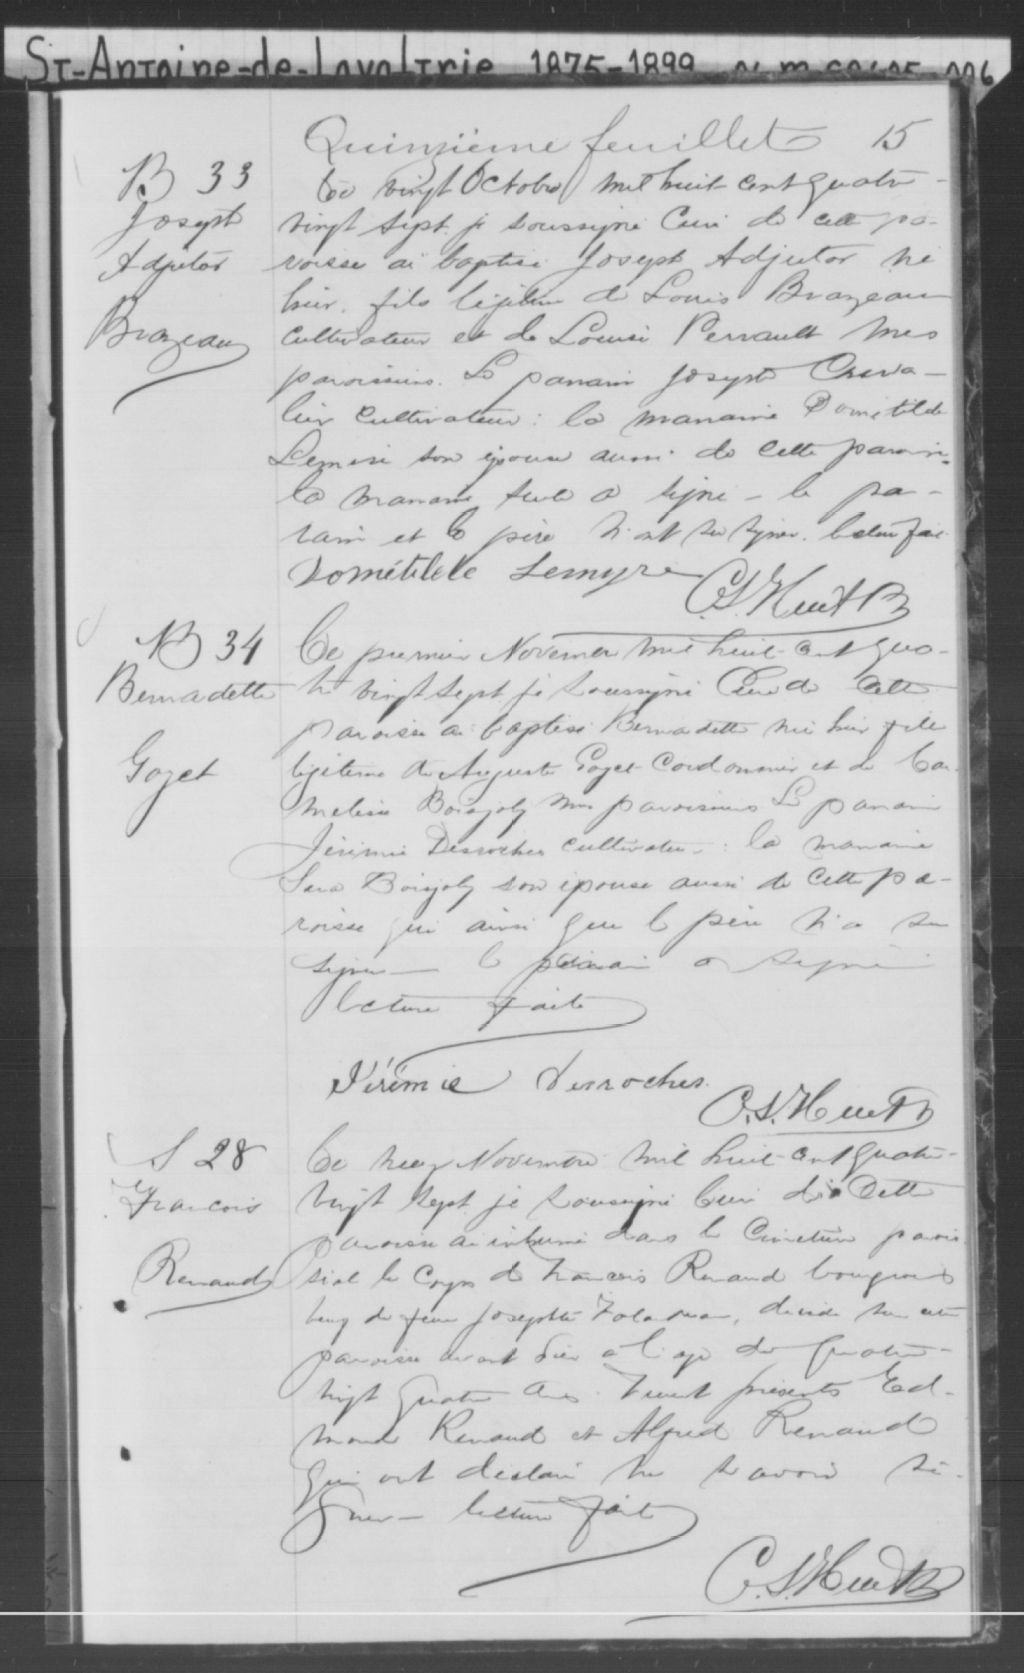 St-Antoine-de-Lavaltrie 1875-1899
Quinzième feuillet 15
B 33
Joseph
Adjutor
Brazeau
Ce vingt Octobre mil huit cent quatre-
vingt sept, je soussigné Curé de cette pa-
roisse ai baptisé Joseph Adjutor né
hier, fils légitime de Louis Brazeau
cultivateur et de Louise Perrault mes
paroissiens. Le parrain Joseph Cheva-
lier cultivateur: la marraine Domitilde
Lemire son épouse aussi de cette paroisse.
la marraine seule a signé - le par-
rain et le père n'ont su signer. lecture faite
Dométilde Lemyre
C.S. Huet
B 34
Bernadette
Goget
Ce premier Novembre mil huit-cent qua-
tre vingt sept je soussigné Curé de cette
paroisse ai baptisé Bernadette née hier fille
légitime de Auguste Goget Cordonnier et de
Boisjoly mes paroissiens Le parrain
Jérémie Desroches cultivateur: la marraine
Sara Boisjoly son épouse aussi de cette pa-
roisse qui ainsi que le père n'a su
signer - le parrain a signé
lecture faite
Jérémie Desroches.
C.S. Huet
S 28
Francois
Renaud
Ce neuf Novembre mil huit-cent quatre-
vingt sept je soussigné Curé de Cette
paroisse ai inhumé dans le Cimetière parois
sial le corps de Francois Renaud bourgeois
veuf de feue Josephte, décédé en cette
paroisse avant hier à l'âge de quatre-
vingt quatre ans. Furent présents Ed-
mond Renaud et Alfred Renaud
qui ont déclaré ne savoir si-
gner - lecture faite
C.S. Huet